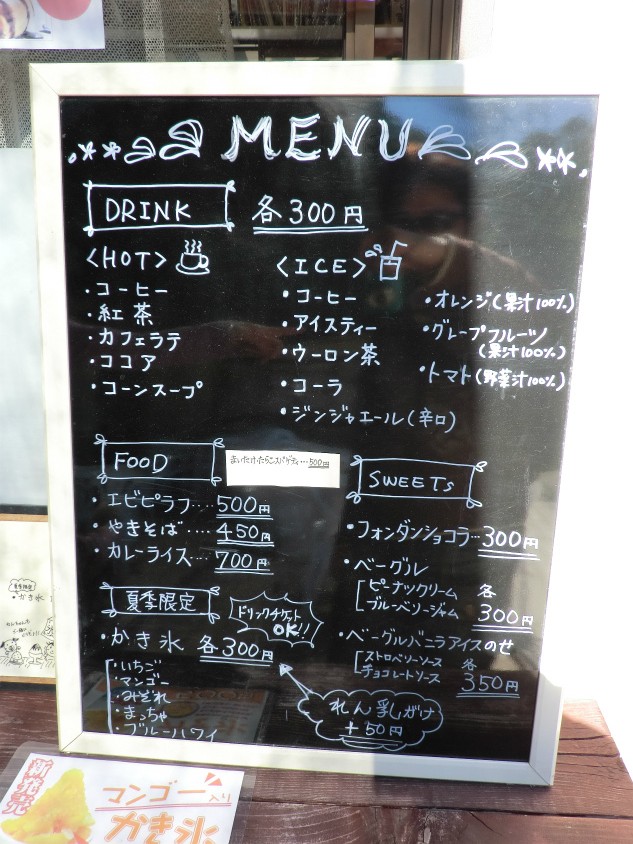 MENU
DRINK 各300円
<HOT>
・コーヒー
・紅茶
・カフェラテ
・ココア
・コーンスープ
<ICE>
・コーヒー
・アイスティー
・ウーロン茶
・コーラ
・ジンジャエール(辛口)
・オレンジ(果汁100%)
・グレープフルーツ
(果汁100%)
・トマト(野菜汁100%)
FOOD
まいたけたらこスパゲティ…500円
・エビピラフ‥‥500円
・やきそば‥‥450円
・カレーライス‥700円
SWEETS
・フォンダンショコラ…300円
・ベーグル
ピーナックリーム 各
ブルーベリージャム 300円
・ベーグルバニラアイスのせ
ストロベリーソース 各
チョコレートソース 350円
夏季限定
ドリンクチケット
OK!!
・かき氷 各300円
・いちご
・マンゴー
・みぞれ
・まっちゃ
・ブルーハワイ
れん乳がけ
+50円
夏季限定
・かき氷
新発売
マンゴー入り
かき氷